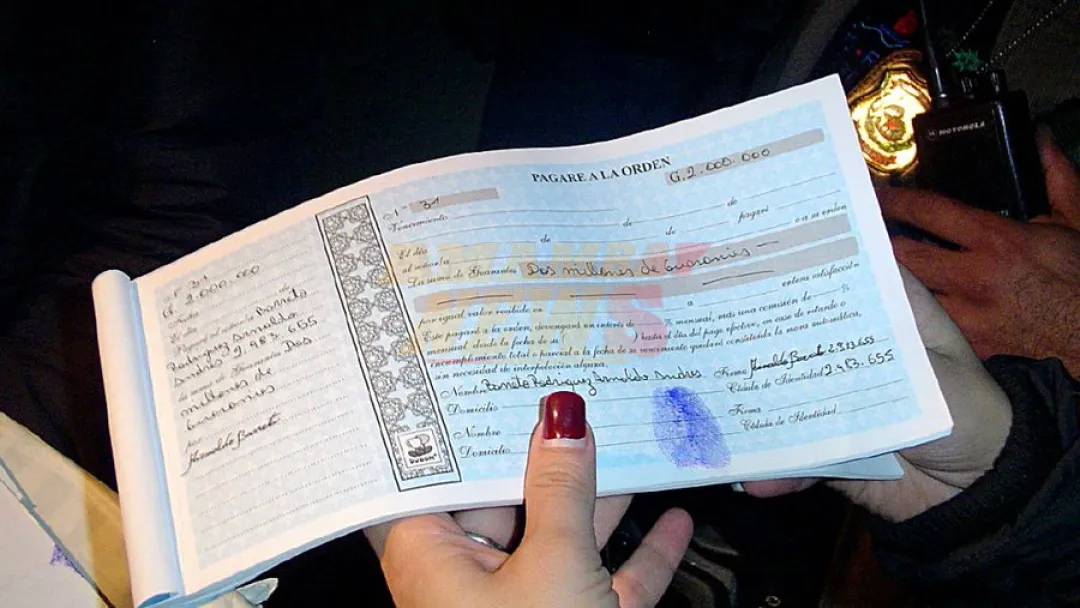 Nº 31
G. 2.000.000
Barreto
Rodriguez Arnaldo
Andrés
la suma de Guaranies Dos
millones de
Guaranies
por
Arnaldo Barreto
PAGARE A LA ORDEN
G. 2.000.000
Nº 31
Vencimiento de de
El día de de pagaré
al señor/a o a su orden
La suma de Guaraníes Dos millones de Guaranies
por igual valor recibido en a entera satisfacción
Este pagaré a la orden, devengará un interés de % mensual, más una comisión de %
mensual desde la fecha de su ( ) hasta el día del pago efectivo, en caso de retardo o
incumplimiento total o parcial a la fecha de su vencimiento quedará constituida la mora automática,
sin necesidad de interpelación alguna.
Nombre Barreto Rodriguez Arnaldo Andres Firma Arnaldo Barreto 2.983.655
Domicilio Cédula de Identidad 2.983.655
Nombre Firma
Domicilio Cédula de Identidad
MOTOROLA